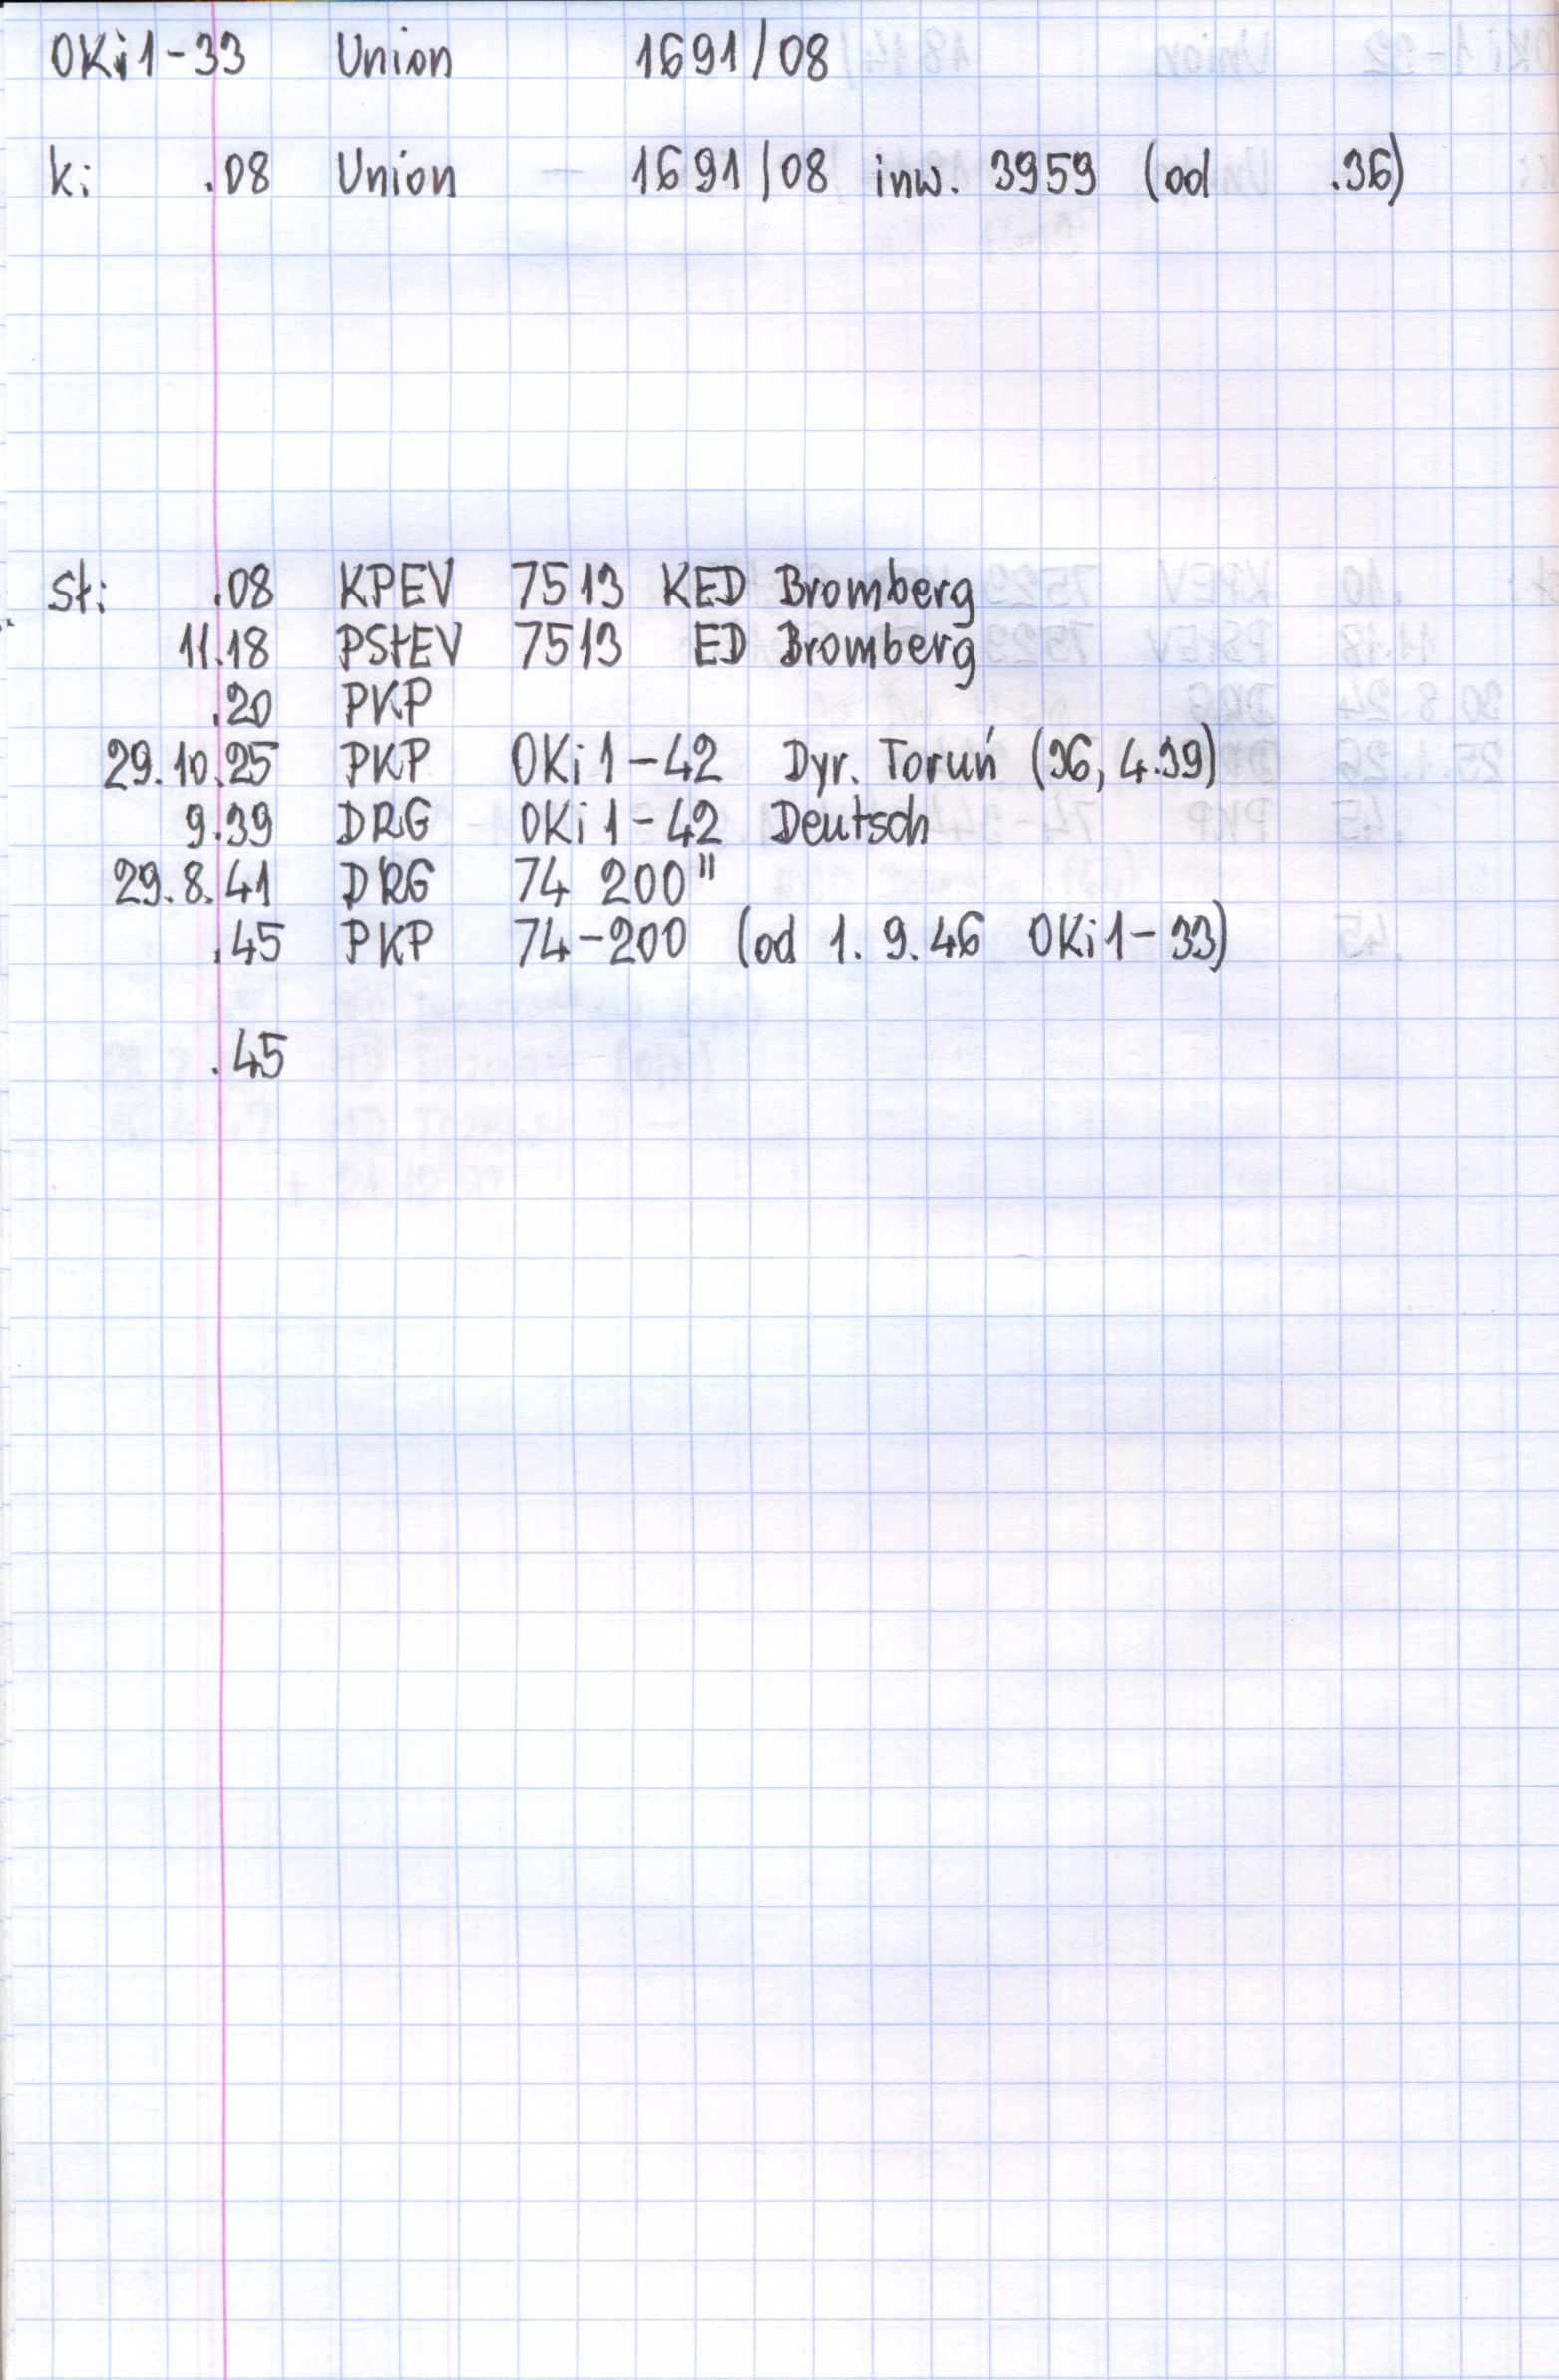 OKi1-33 Union 1691/08
k: .08 Union 1691/08 inw. 3959 (od .36)
st: .08 KPEV 7513 KED Bromberg
11.18 PStEV 7513 ED Bromberg
.20 PKP
29.10.25 PKP OKi1-42 Dyr. Toruń (36, 4.39)
9.39 DRG OKi1-42 Deutsch
29.8.41 DRG 74 200"
.45 PKP 74-200 (od 1.9.46 OKi1-33)
.45